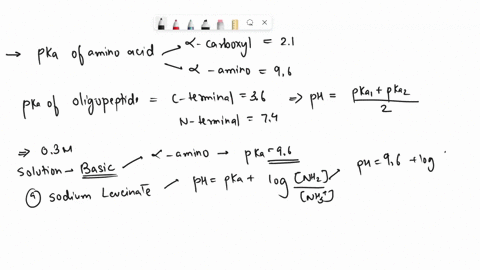 → pKa of amino acid α-carboxyl = 2.1
α-amino = 9.6
pKa of oligopeptide = C-terminal = 3.6 ⇒ pH = pKa1 + pKa2 / 2
N-terminal = 7.4
⇒ 0.3M
Solution - Basic α-amino → pKa = 9.6
ⓐ Sodium Leucinate pH = pKa + log [NH2] / [NH3+] pH = 9.6 + log